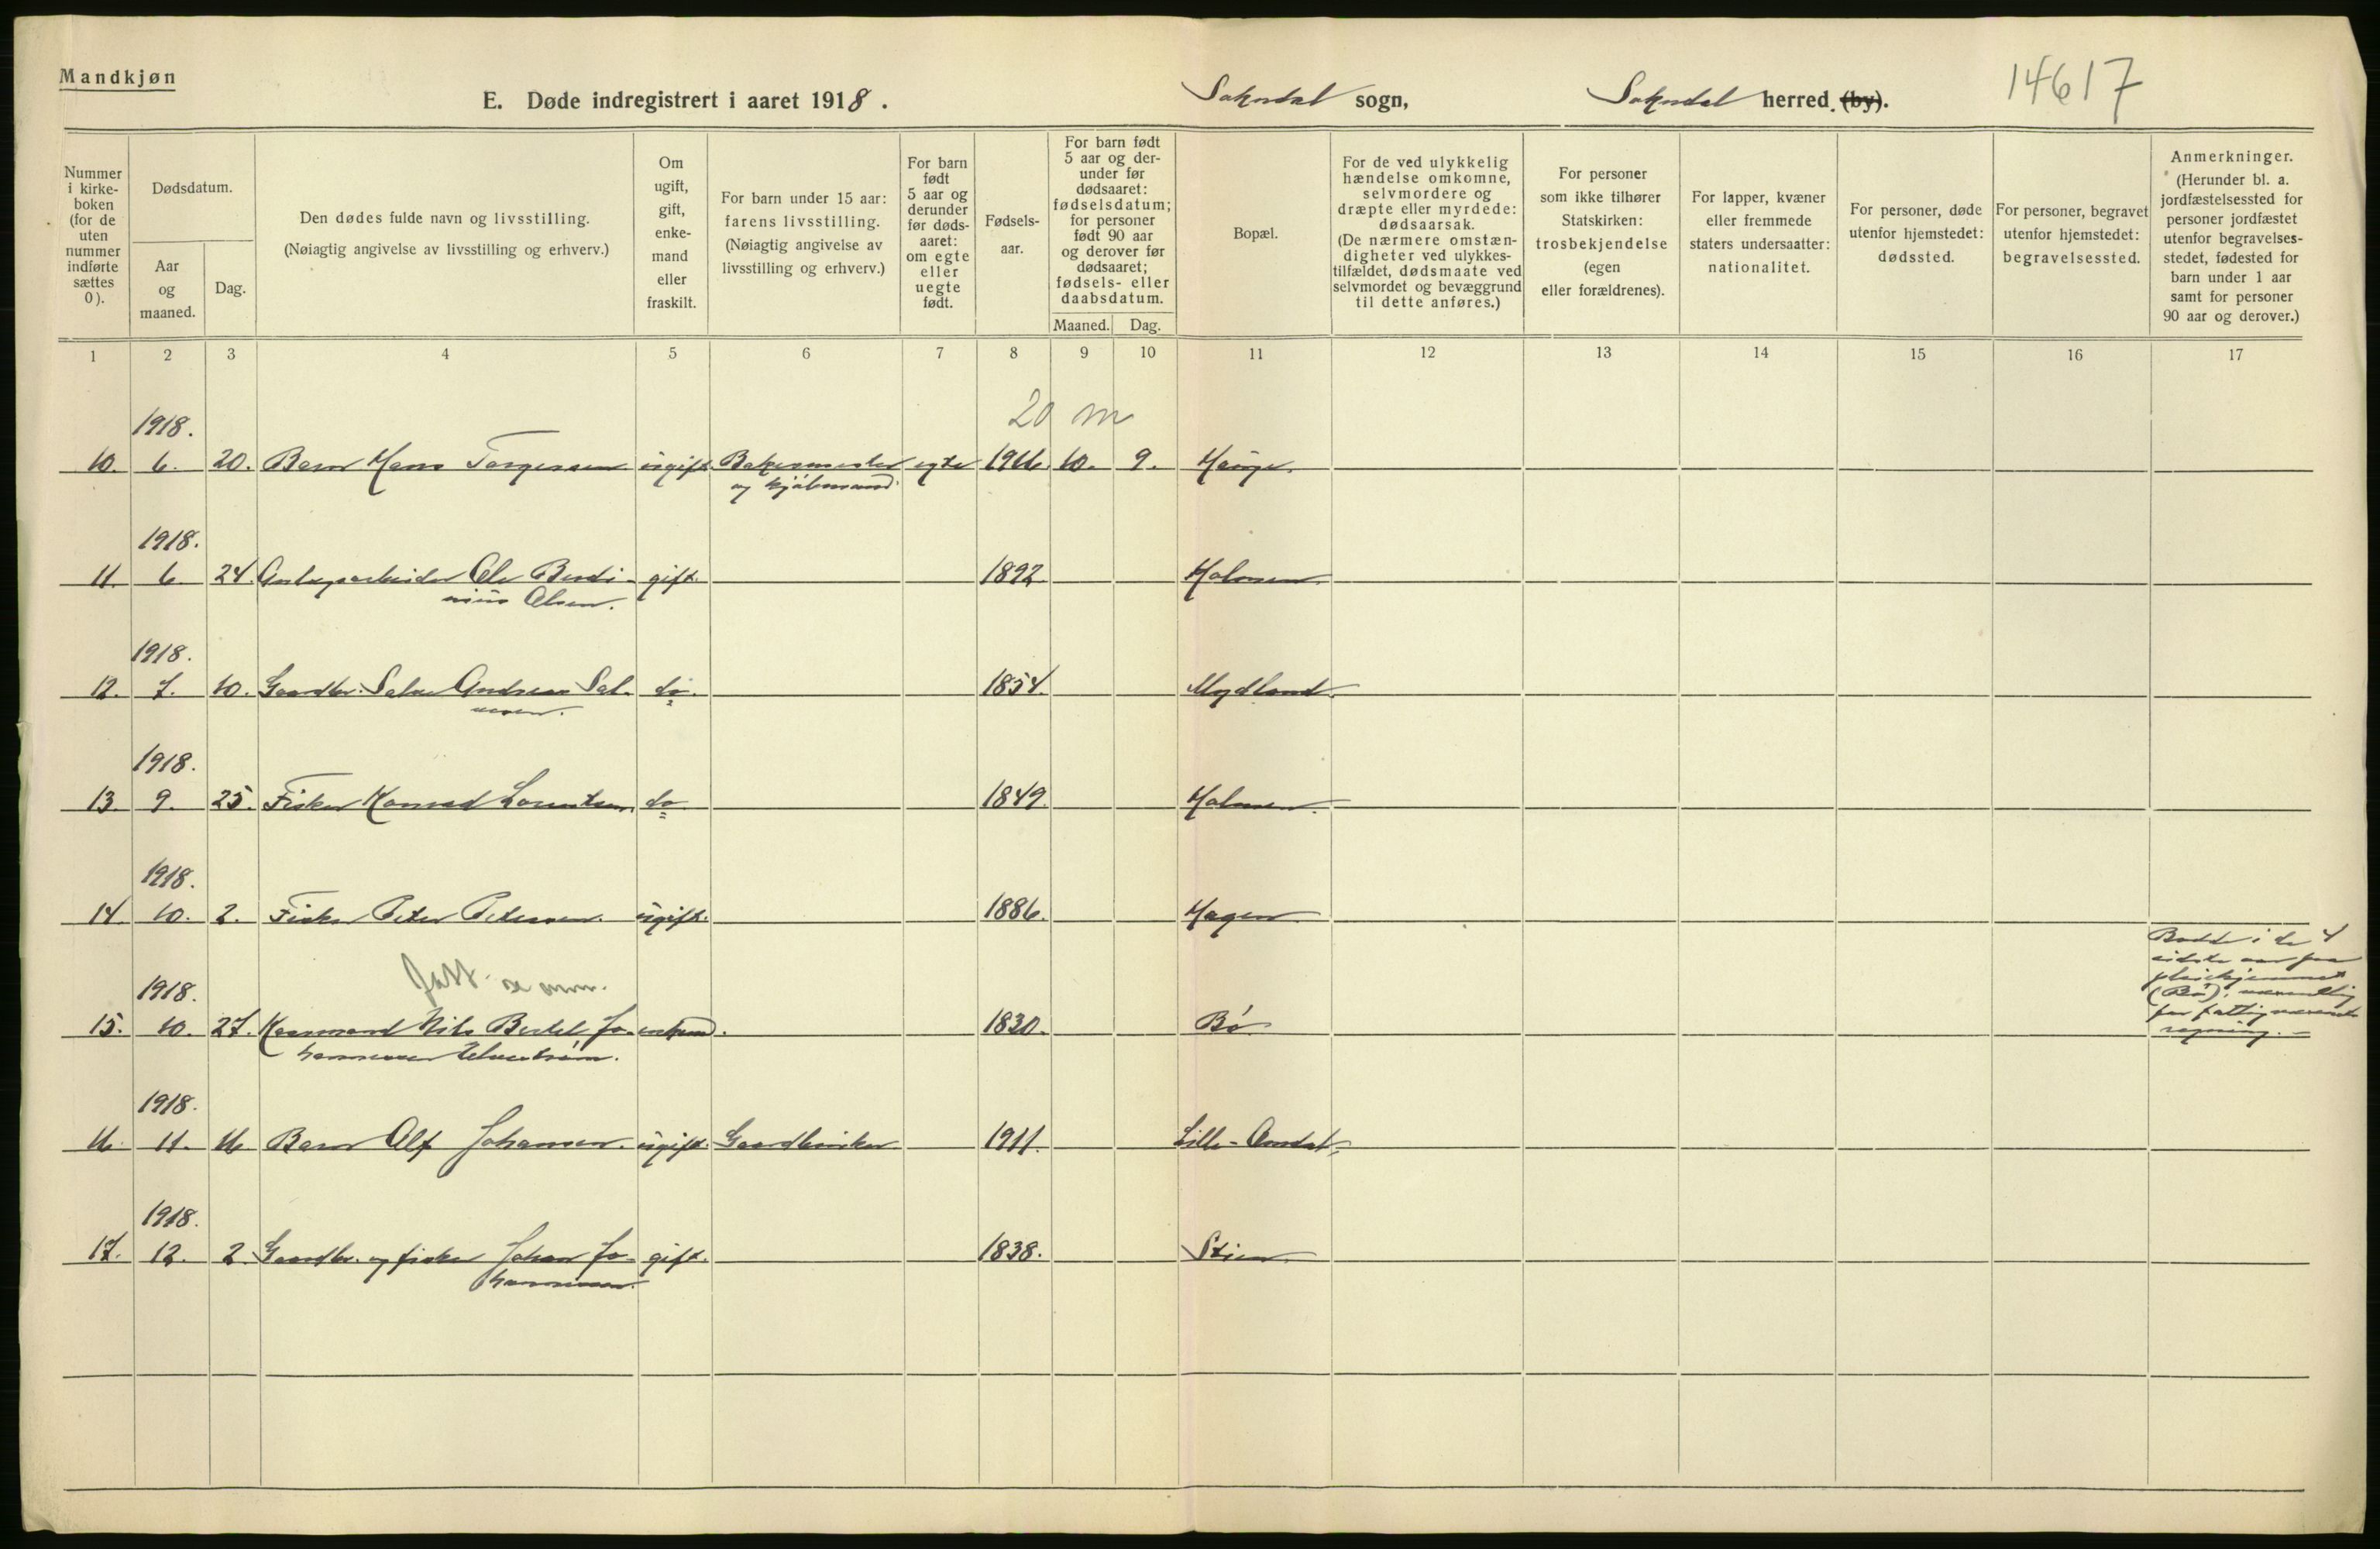 Mandkjøn
E. Døde indregistrert i aaret 1918.
Sokndal sogn,
Sokndal herred. (by).
14617
Nummer i kirkeboken (for de uten nummer indførte sættes 0).
Dødsdatum.
Aar og maaned.
Dag.
Den dødes fulde navn og livsstilling.
(Nøiagtig angivelse av livsstilling og erhverv.)
Om ugift, gift, enkemand eller fraskilt.
For barn under 15 aar: farens livsstilling.
(Nøiagtig angivelse av livsstilling og erhverv.)
For barn født 5 aar og derunder før dødsaaret: om egte eller uegte født.
Fødselsaar.
For barn født 5 aar og derunder før dødsaaret: fødselsdatum; for personer født 90 aar og derover før dødsaaret; fødsels- eller daabsdatum.
Maaned.
Dag.
Bopæl.
For de ved ulykkelig hændelse omkomne, selvmordere og dræpte eller myrdede: dødsaarsak.
(De nærmere omstændigheter ved ulykkestilfældet, dødsmaate ved selvmordet og bevæggrund til dette anføres.)
For personer som ikke tilhører Statskirken: trosbekjendelse (egen eller forældrenes).
For lapper, kvæner eller fremmede staters undersaatter: nationalitet.
For personer, døde utenfor hjemstedet: dødssted.
For personer, begravet utenfor hjemstedet: begravelsessted.
Anmerkninger.
(Herunder bl. a. jordfæstelsessted for personer jordfæstet utenfor begravelsesstedet, fødested for barn under 1 aar samt for personer 90 aar og derover.)
1 2 3 4 5 6 7 8 9 10 11 12 13 14 15 16 17
20 m
1918.
10. 6. 20. Barn Hans Torgersen ugift. Bakermester egte 1916. 10. 9. Hauge.
og kjøbmand.
1918.
11. 6 24. Anlægsarbeider Ole Berdi- gift. 1892. Holmen.
nius Olsen.
1918.
12. 7. 10. Gaardbr. Salve Andreas Sal- do. 1854. Mydland.
vesen.
1918.
13. 9. 25. Fisker Konrad Lorentsen do 1849. Holmen.
1918.
14. 10. 2. Fisker Peter Petersen. ugift. 1886. Hagen
1918.
15. 10. 27. Kaarmand Nils Bertel Jo- enkem. 1830. Bø
hannessen
Bodde i de 4
sidste aar paa
pleiehjemmet
(Bø),
for fattigvæsenets
regning. —
1918.
16. 11. 16. Barn Alf Johansen. ugift. Gaardbruker 1911. Lille-Omdal
1918.
17. 12. 2. Gaardbr. og fisker Johan Jo- gift. 1838. Stien
hannessen.